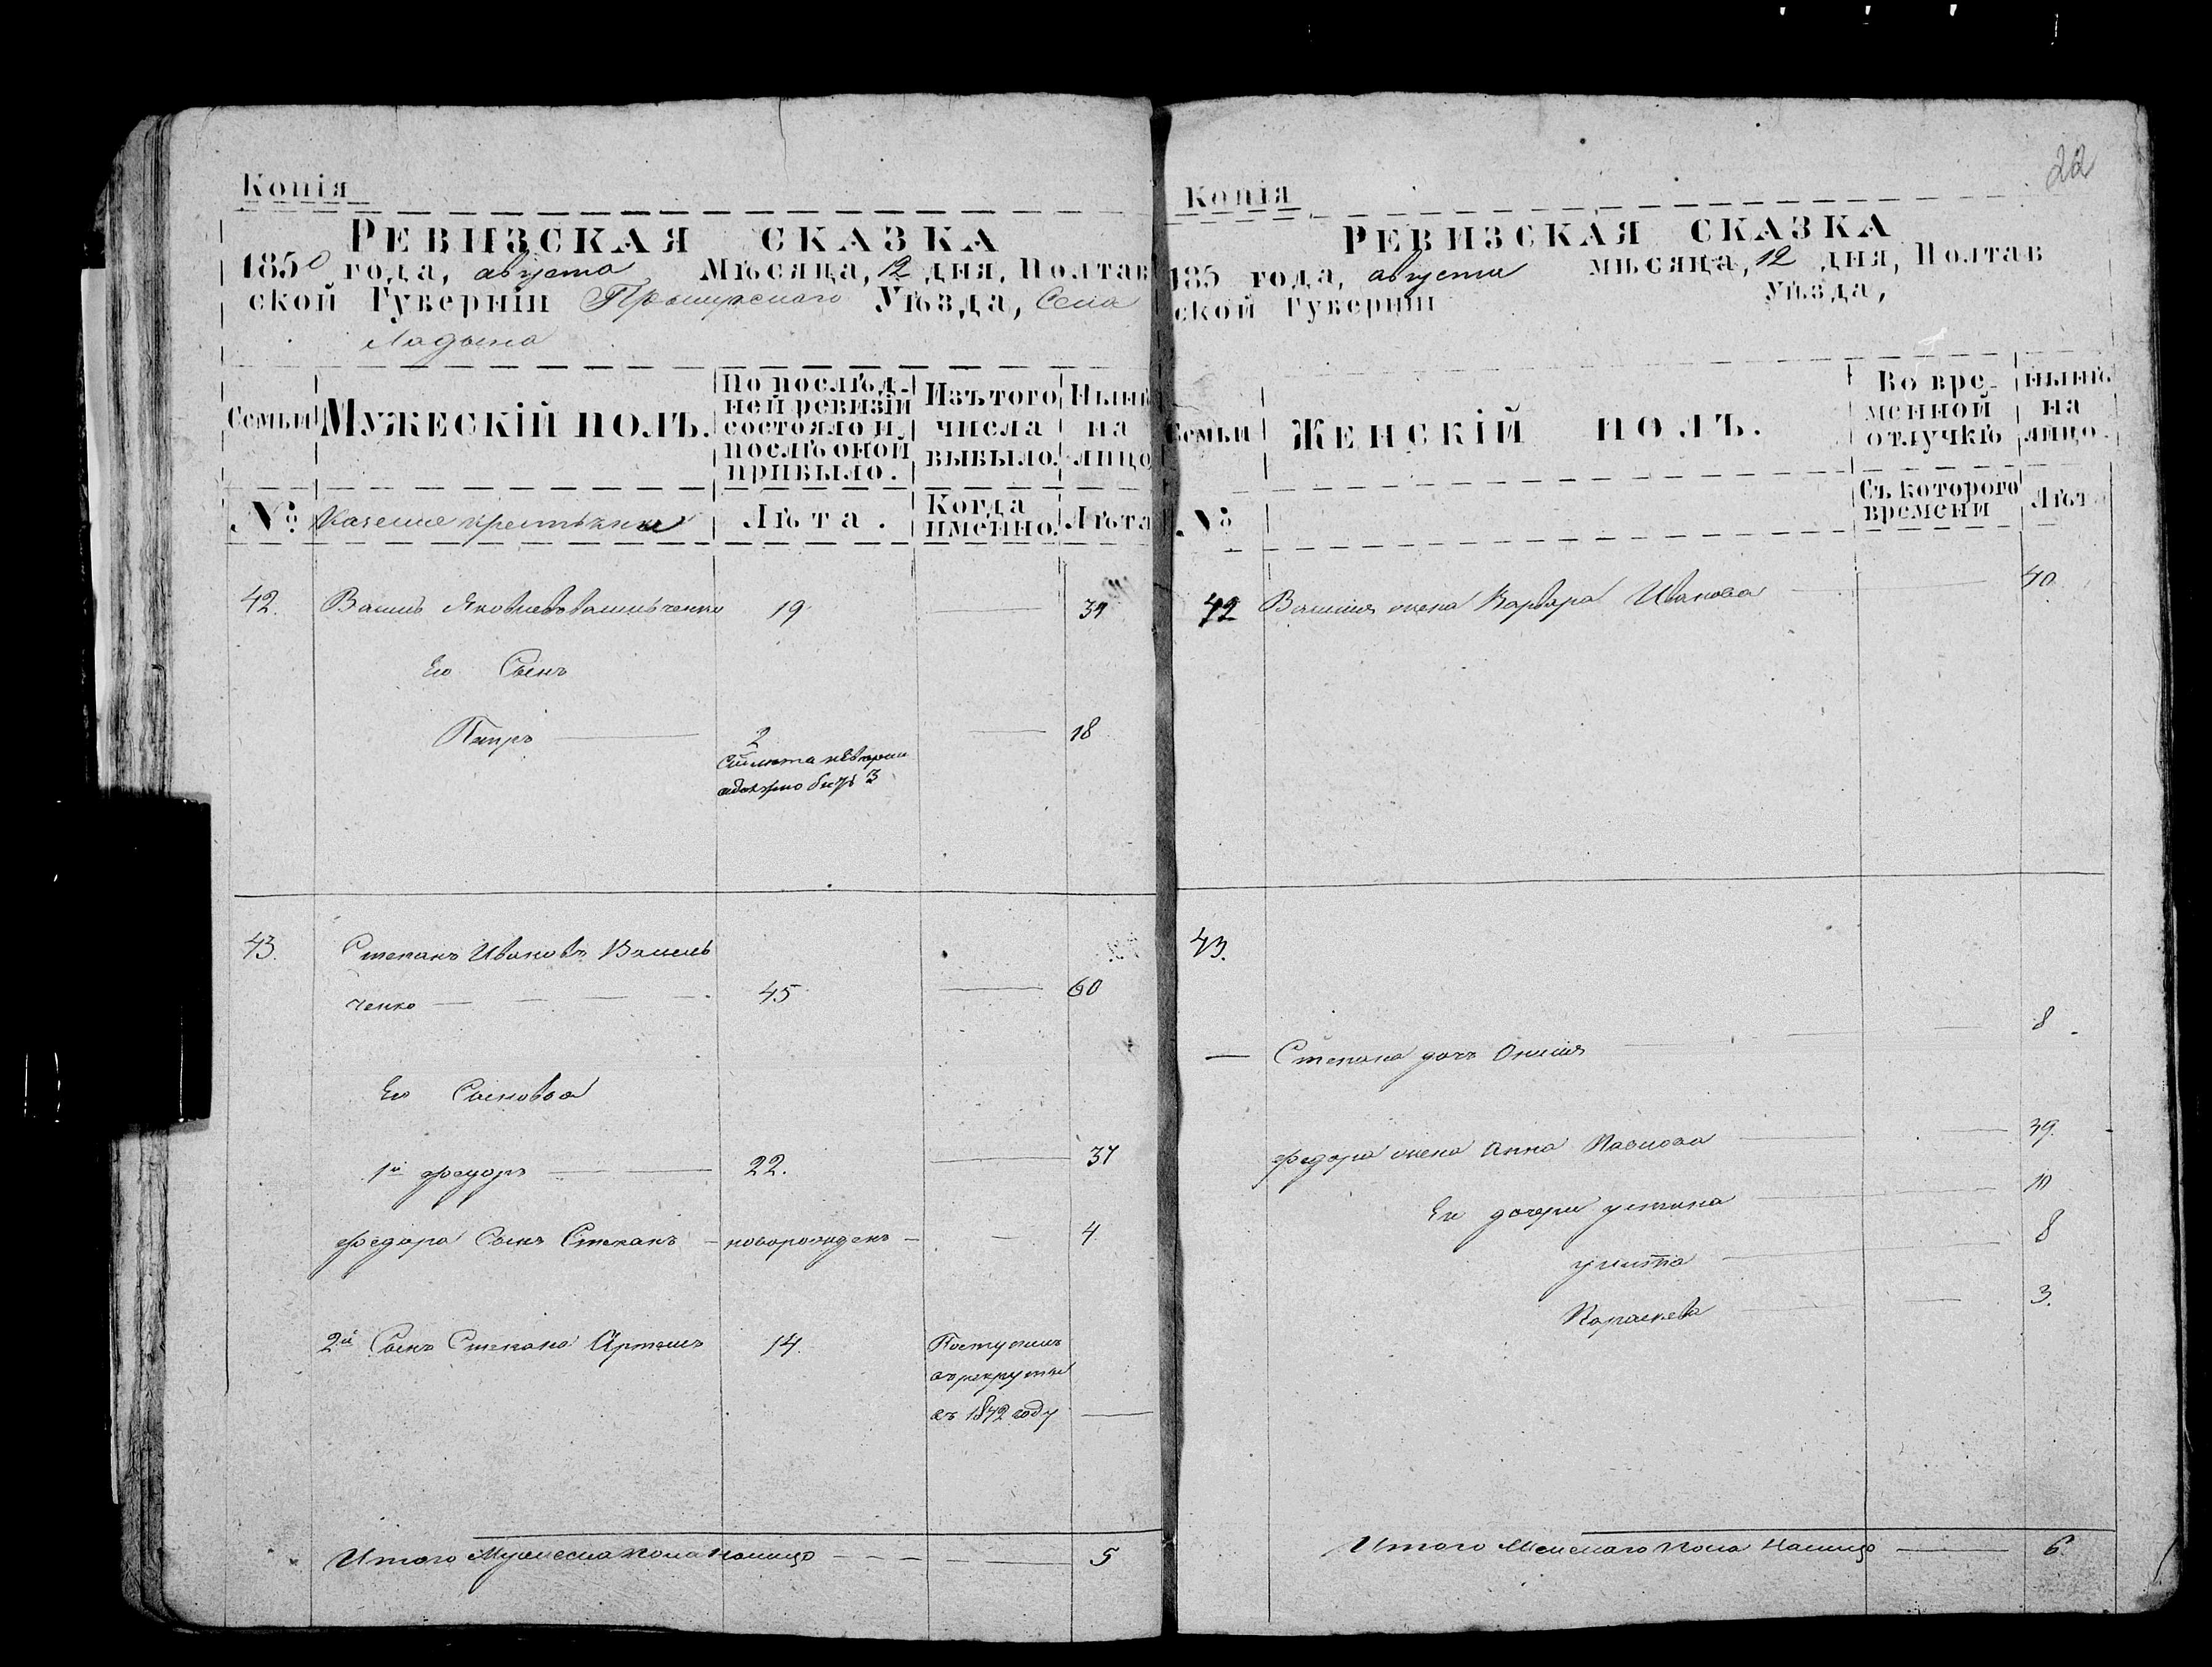 Копія
РЕВИЗСКАЯ СКАЗКА
1850 года, августа Мѣсяца, 12 дня, Полтав
ской Губерніи Прилуцкаго Уѣзда, Села
Ладына
Семьи
МУЖЕСКІЙ ПОЛЪ.
По послѣд-
ней ревизіи
состояло и
послѣ оной
прибыло.
Изъ того
числа
выбыло.
Нынѣ
на
лицо
№
Казенные крестьяне
Лѣта.
Когда
именно.
Лѣта
42. Василь Яковлевъ Васильченко 19 34
Его Сынъ
Петръ 2 18
должно быть 3
43. Степанъ Ивановъ Василь
ченко 45 60
Его Сыновья
1й Федоръ 22. 37
Федора Сынъ Степанъ новорожденъ 4
2й Сынъ Степана Артемъ 14. Поступилъ
въ рекруты
въ 1842 году
Итого Мужеска пола налицо 5
22
Копія
РЕВИЗСКАЯ СКАЗКА
185 года, августа мѣсяца, 12 дня, Полтав
ской Губерніи Уѣзда,
Семьи
ЖЕНСКІЙ ПОЛЪ.
Во вре-
менной
отлучкѣ
нынѣ
на
лицо.
№
Съ которого
времени
Лѣта
42 Василя жена Варвара Иванова 40
43.
Степана дочь 8
Федора жена Анна Павлова 39.
Ея дочери устина 10
улита 8
Параскева 3.
Итого Женскаго пола налицо 6